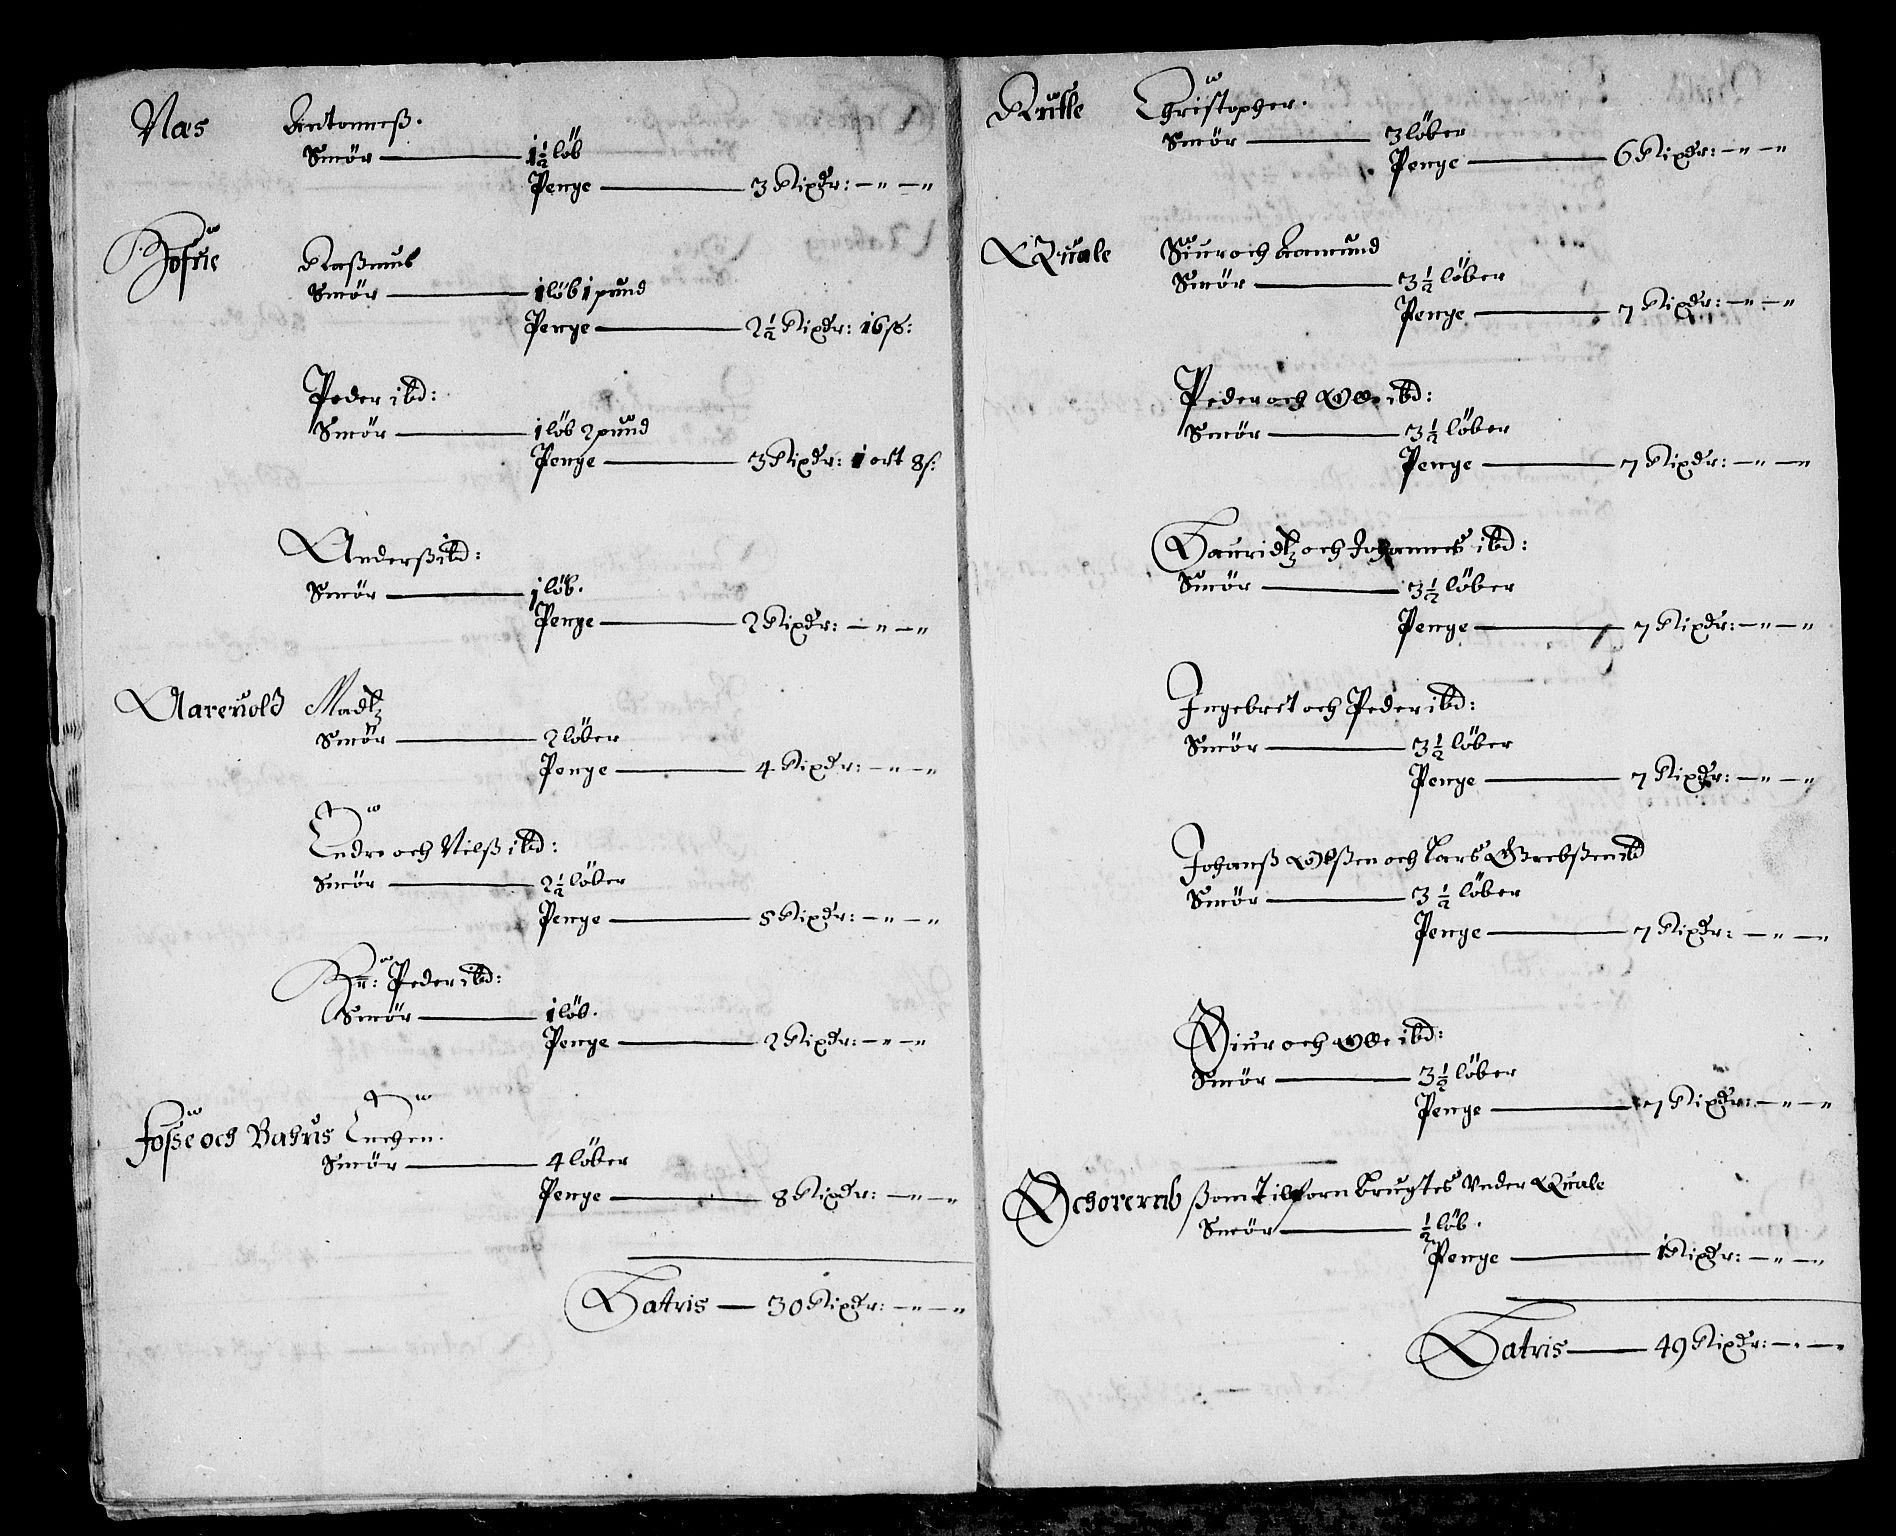 Næs Antonneß.
Smör — 1½ löb
Penge — 3 Rixdr: — " — "
Hofue Raßmus
Smör — 1 löb 1 pund
Penge — 2½ Rixdr: 16 ß:
Peder ibd:
Smör — 1 löb 2 pund
Penge — 3 Rixdr: 1 ort 8 ß:
Anderß ibd:
Smör — 1 löb.
Penge — 2 Rixdr: — " — "
Aarevold Madtz
Smör — 2 löber
Penge — 4 Rixdr: — " — "
Endre och Nilß ibd:
Smör — 2½ löber
Penge — 5 Rixdr: — " — "
Hr: Peder ibd:
Smör — 1 löb.
Penge — 2 Rixdr: — " — "
Foße och
Smör — 4 löber
Penge — 8 Rixdr: — " — "
Latris — 30 Rixdr: — " — "
Rutle Christopher.
Smör — 3 löber
Penge — 6 Rixdr: — " — "
Quale Siur och Aamund
Smör — 3½ löber
Penge — 7 Rixdr: — " — "
Peder och Olle ibd:
Smör — 3½ löber
Penge — 7 Rixdr: — " — "
Lauridtz och Johannes ibd:
Smör — 3½ löber
Penge — 7 Rixdr: — " — "
Ingebret och Peder ibd:
Smör — 3½ löber
Penge — 7 Rixdr: — " — "
Johanß Olßen och Lars ibd
Smör — 3½ löber
Penge — 7 Rixdr: — " — "
Siur och Olle ibd:
Smör — 3½ löber
Penge — 7 Rixdr: — " — "
ßom Tilforn brugtes Under Quale
Smör — ½ löb.
Penge — 1 Rixdr: — " — "
Latris — 49 Rixdr: — " — "